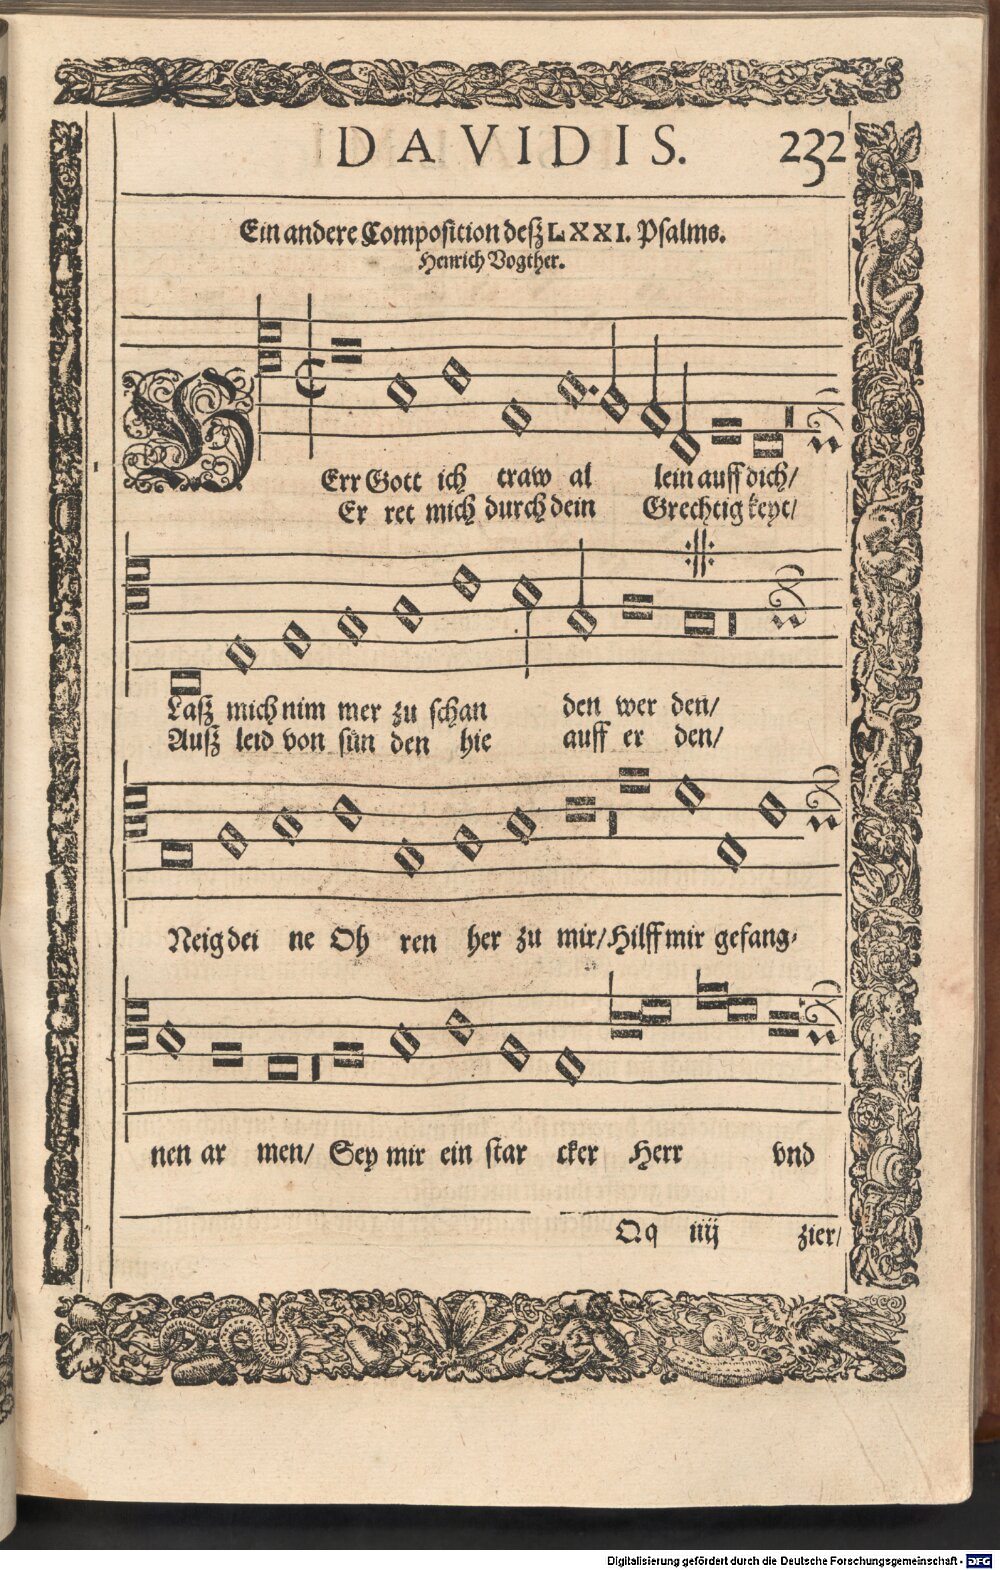 DAVIDIS. 232
Ein andere Composition deß LXXI. Psalms.
Henrich Vogther.
HErr Gott ich traw al lein auff dich/
Er ret mich durch dein Grechtigkeyt/
Laß mich nim mer zu schan den wer den/
Auß leid von sün den hie auff er den/
Neig dei ne Oh ren her zu mir/ Hilff mir gefang-
nen ar men/ Sey mir ein star cker Herr vnd
Qq iiij zier/
Digitalisierung gefördert durch die Deutsche Forschungsgemeinschaft - DFG